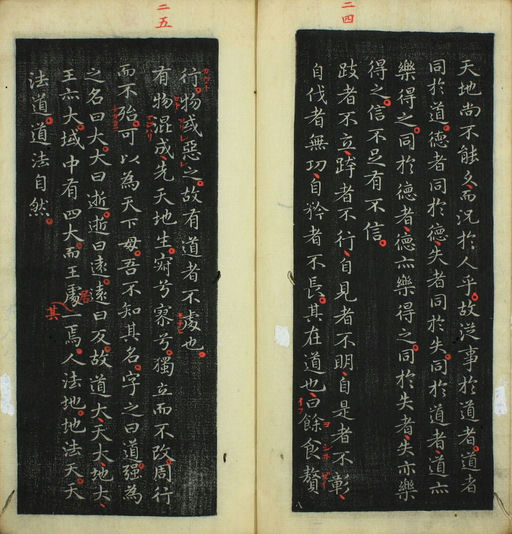 二四
天地尚不能久而況於人乎故從事於道者道者
同於道德者同於德失者同於失同於道者道亦
樂得之同於德者德亦樂得之同於失者失亦樂
得之信不足有不信
跂者不立跨者不行自見者不明自是者不彰
自伐者無功自矜者不長其在道也曰餘食贅
二五
行物或惡之故有道者不處也
有物混成先天地生寂兮寥兮獨立而不改周行
而不殆可以為天下母吾不知其名字之曰道强為
之名曰大大曰逝逝曰遠遠曰反故道大天大地大
王亦大域中有四大而王處一焉人法地地法天天
居
其
法道道法自然